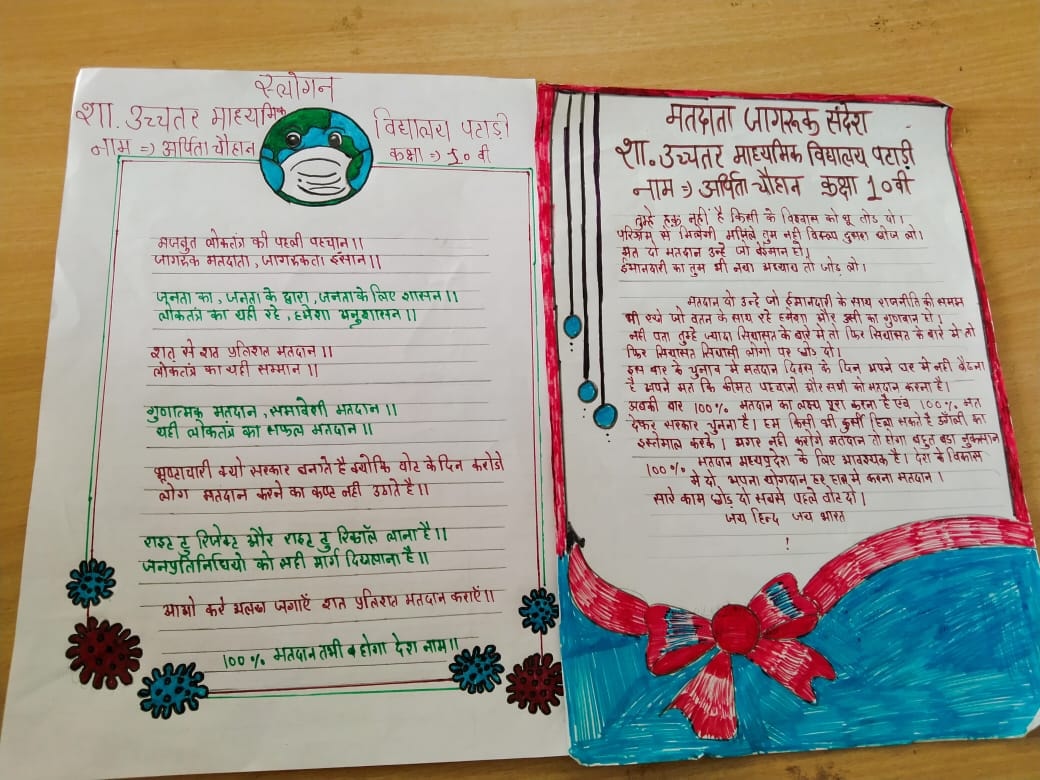 स्लोगन
शा. उच्चतर माध्यमिक विद्यालय पटाड़ी
नाम => अर्पिता चौहान कक्षा => 10 वी
मजबुत लोकतंत्र की पहली पहचान।।
जागरूक मतदाता, जागरूकता इंसान।।
जनता का, जनता के द्वारा, जनता के लिए शासन।।
लोकतंत्र का यही रहे, हमेशा अनुशासन।।
शत् से शत प्रतिशत मतदान।।
लोकतंत्र का यही सम्मान।।
गुणात्मक मतदान, समावेशी मतदान।।
यही लोकतंत्र का सफल मतदान।।
भ्रष्टाचारी क्यो सरकार बनाते है क्योकि वोट के दिन करोडो
लोग मतदान करने का कष्ट नही उठाते है।।
राइट टु रिजेक्ट और राइट टु रिकॉल लाना है।।
जनप्रतिनिधियो को सही मार्ग दिखलाना है।।
आओ करे अलख जगाएँ शत प्रतिशत मतदान कराएँ।।
100% मतदान तभी व होगा देश नाम।।
मतदाता जागरूक संदेश
शा. उच्चतर माध्यमिक विद्यालय पटाड़ी
नाम => अर्पिता चौहान कक्षा 10 वी
तुम्हे हक नहीं है किसी के विश्वास को यू तोड दो।
परिश्रम से मिलेगी मंजिले तुम नही विकल्प दुसरा खोज लो।
मत दो मतदान उन्हे जो बेईमान हो।
ईमानदारी का तुम भी नया अध्याय तो जोड़ लो।
मतदान दो उन्हे जो ईमानदारी के साथ राजनीति की समझ
भी रखे जो वतन के साथ रहे हमेशा और उसी का गुणवान हो।
नही पता तुम्हे ज्यादा सियासत के बारे मे तो फिर सियासत के बारे मे तो
फिर सियासत सियासी लोगो पर छोड दो।
इस बार के चुनाव मे मतदान दिवस के दिन अपने घर मे नही बैठना
है अपने मत कि कीमत पहचानो और सभी को मतदान करना है।
अबकी बार 100% मतदान का लक्ष्य पूरा करना है एवं 100% मत
देकर सरकार चुनना है। हम किसी भी कुर्सी हिला सकते है उँगली का
इस्तेमाल करके। अगर नही करोगे मतदान तो होगा बहुत बडा नुकसान
100% मतदान मध्यप्रदेश के लिए आवश्यक है। देश के विकास
मे दो अपना योगदान हर हाल मे करना मतदान।
सारे काम छोड़ दो सबसे पहले वोट दो।
जय हिन्द जय भारत
!